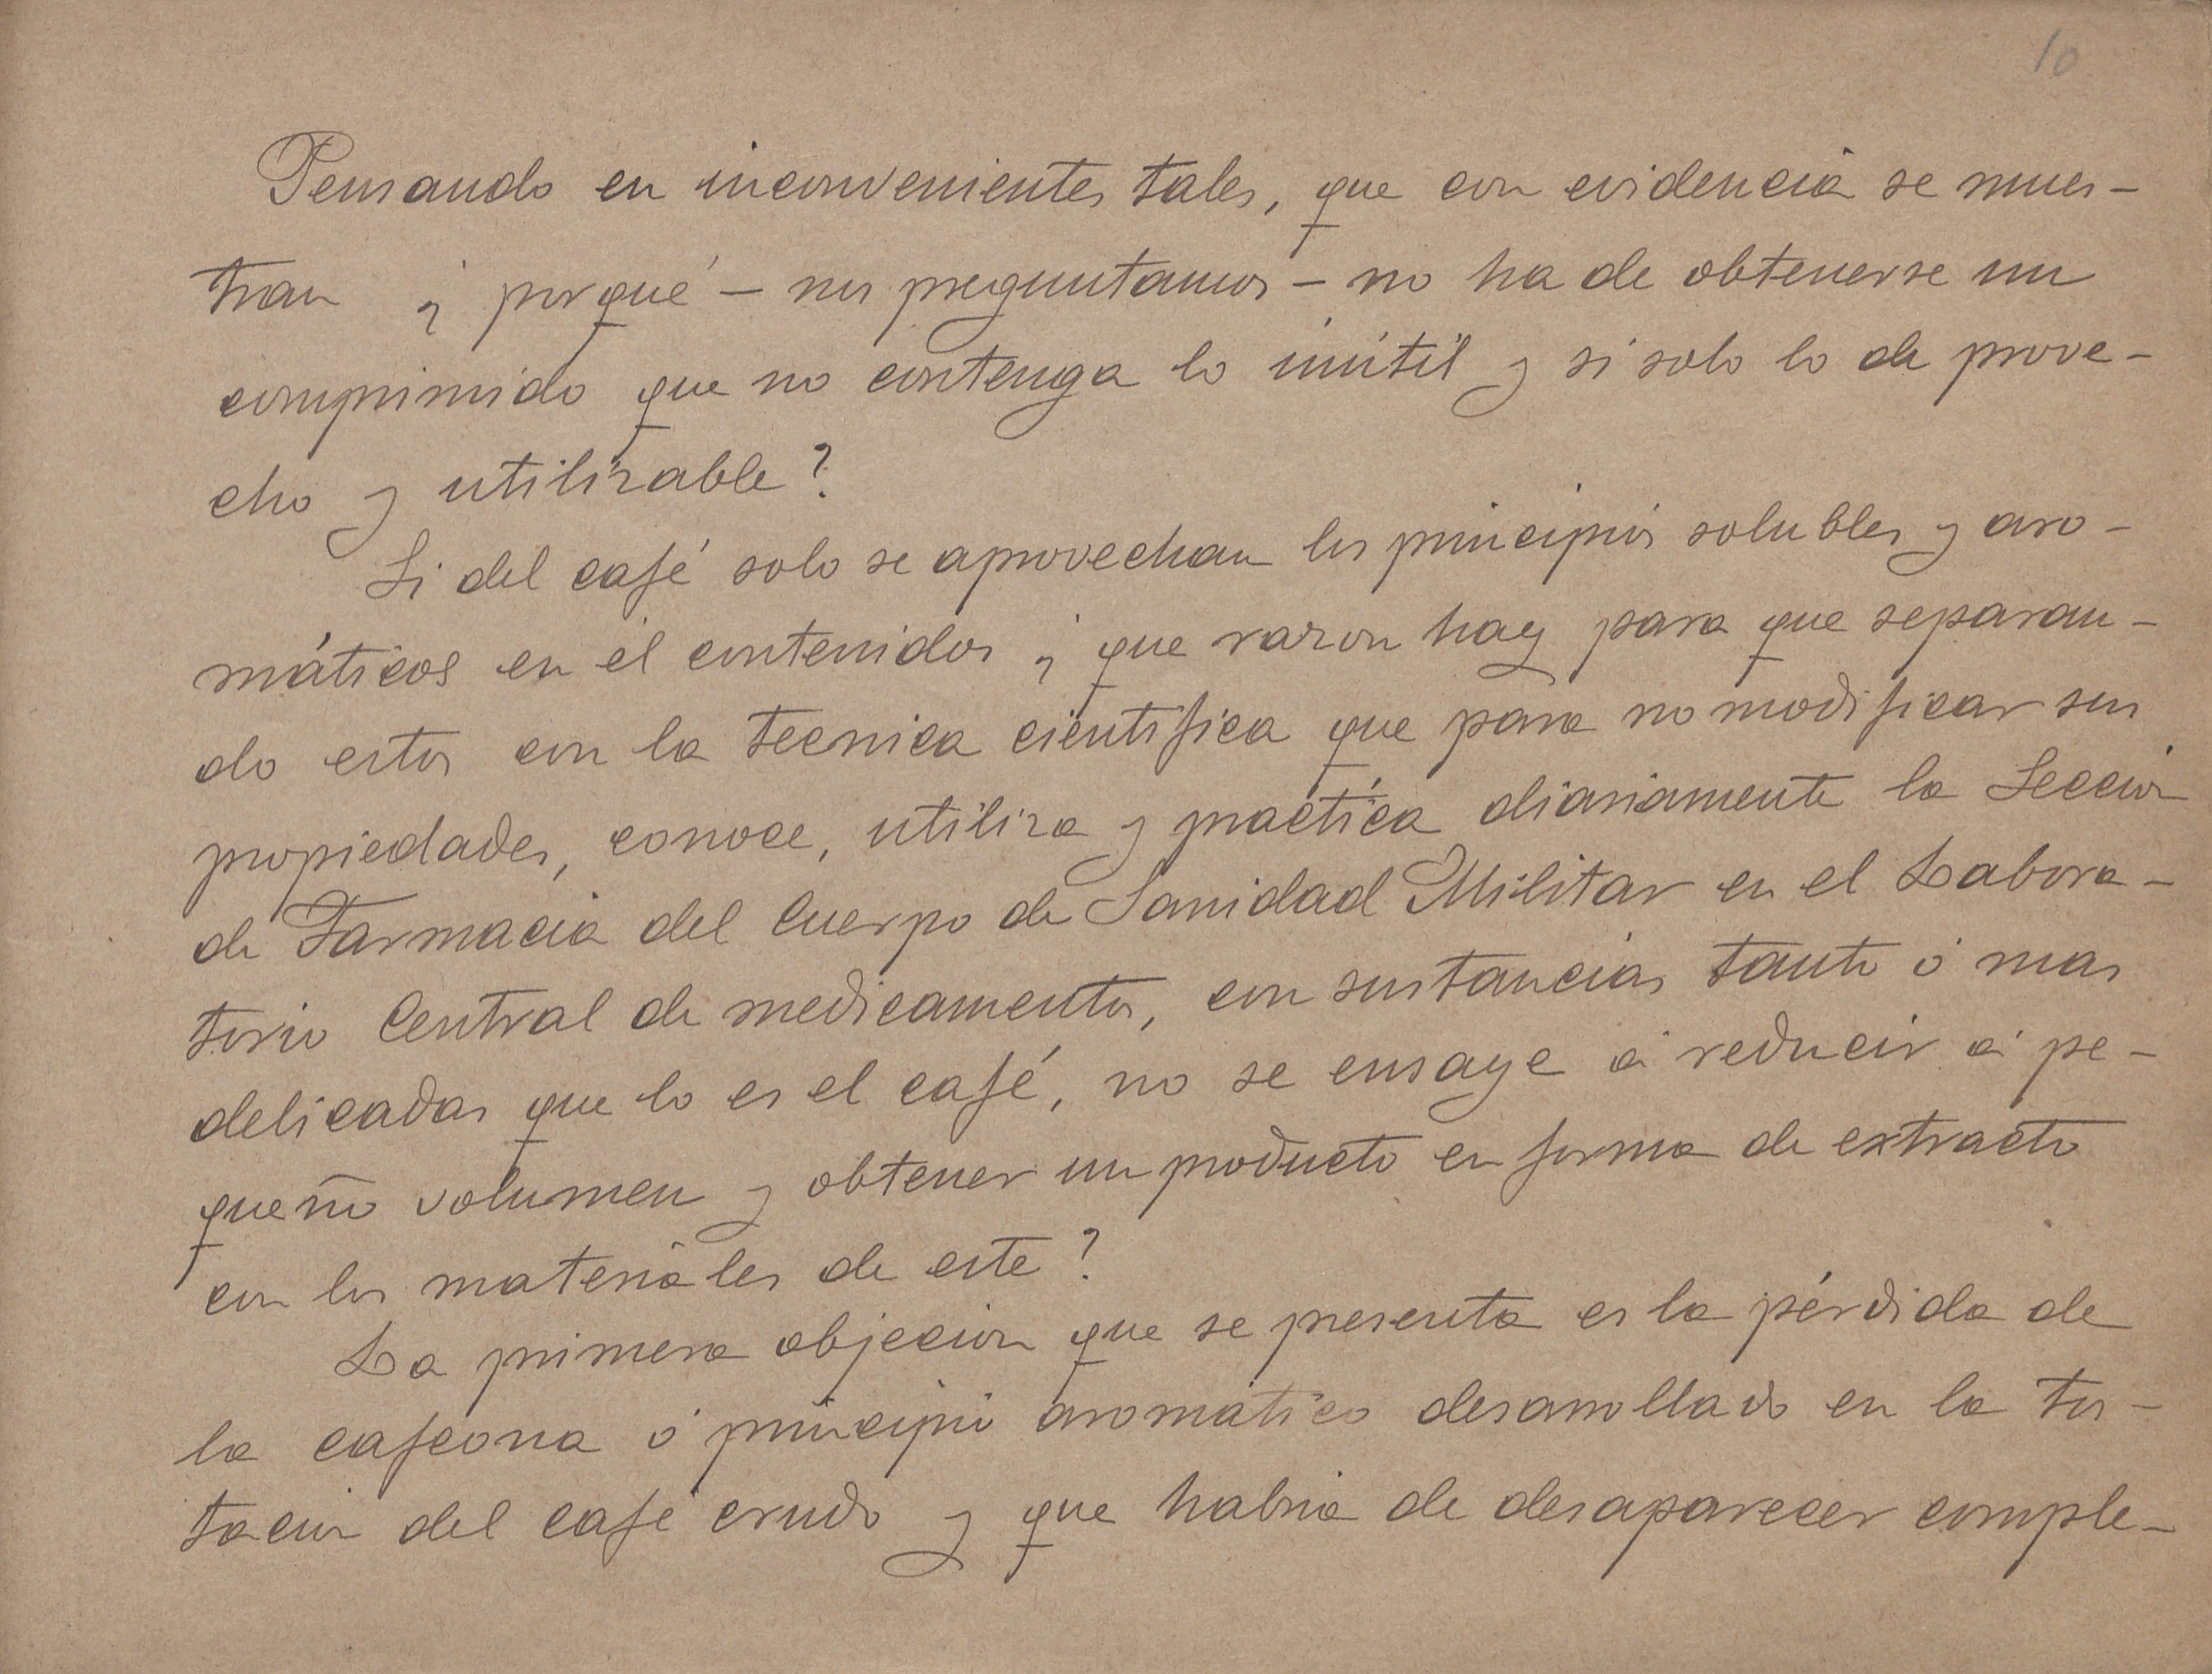 10
Pensando en inconvenientes tales, que con evidencia se mues-
tran ¿ porqué – nos preguntamos – no ha de obtenerse un
comprimido que no contenga lo inútil y si solo lo de prove-
cho y utilizable?
Si del café solo se aprovechan los principios solubles y aro-
máticos en él contenidos ¿ que razon hay para que separan-
do estos con la tecnica cientifica que para no modificar sus
propiedades, conoce, utiliza y practica diariamente la Sección
de Farmacia del Cuerpo de Sanidad Militar en el Labora-
torio Central de medicamentos, con sustancias tanto ó mas
delicadas que lo es el café, no se ensaye á reducir á pe-
queño volumen y obtener un producto en forma de extracto
con los materiales de este?
La primera objecion que se presenta es la pérdida de
la cafeona ó principio aromatico desarrollado en la tos-
tacion del café crudo y que habria de desaparecer comple-